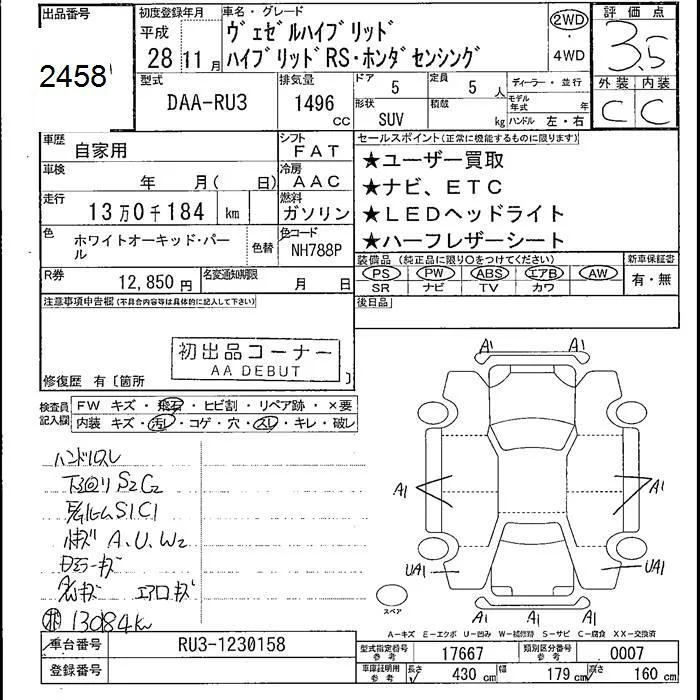 出品番号
2458
初度登録年月
平成
28 11月
車名・グレード
ヴェゼルハイブリッド
ハイブリッドRS・ホンダセンシング
2WD
・
4WD
評価点
3.5
外装 内装
C C
型式
DAA-RU3
排気量
1496
cc
ドア
5
定員
5
人
形状
SUV
積載
kg
ディーラー・並行
モデル年式
年
ハンドル 左・右
車歴
自家用
シフト
FAT
車検
年 月( 日)
冷房
AAC
走行
13万0千184 km
燃料
ガソリン
色
ホワイトオーキッド・パール
色替
色コード
NH788P
R券
12,850円
名変通知期限
月 日
セールスポイント(正常に機能するものに限ります)
★ユーザー買取
★ナビ、ETC
★LEDヘッドライト
★ハーフレザーシート
装備品(純正品に限り○をつけてください)
PS PW ABS エアB AW
SR ナビ TV カワ
新車保証書
有・無
後日品
注意事項申告欄(不具合内容等は具体的に記入して下さい)
初出品コーナー
AA DEBUT
修復歴 有〔箇所 〕
検査員記入欄
FW キズ・飛石・ヒビ割・リペア跡・×要
内装 キズ・汚レ・コゲ・穴・スレ・キレ・破レ
ハンドルスレ
下回りS2C2
S1C1
A、U、W2
エアロキズ
13084km
A1 A1
A1 A1
UA1 UA1
A1 A1 A1
スペア
A-キズ E-エクボ U-凹み W-補修跡 S-サビ C-腐食 XX-交換済
車台番号
RU3-1230158
登録番号
型式指定番号
参考
17667
類別区分番号
参考
0007
車庫証明用
参考
長さ 430 cm 幅 179 cm 高さ 160 cm